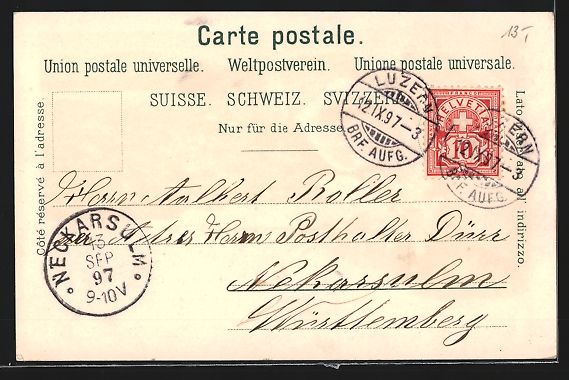 13.-
Carte postale.
Union postale universelle. Weltpostverein. Unione postale universale.
SUISSE. SCHWEIZ. SVIZZERA.
Nur für die Adresse.
Côté réservé à l'adresse.
Lato riservato all' indirizzo.
LUZERN
12.IX.97-3
BRF. AUFG.
HELVETIA
10
LUZERN
12.IX.97-3
BRF. AUFG.
Herrn Adalbert Roller
Herrn Posthalter Dürr
Nekarsulm
Württemberg
NECKARSULM
13
SEP
97
9-10V